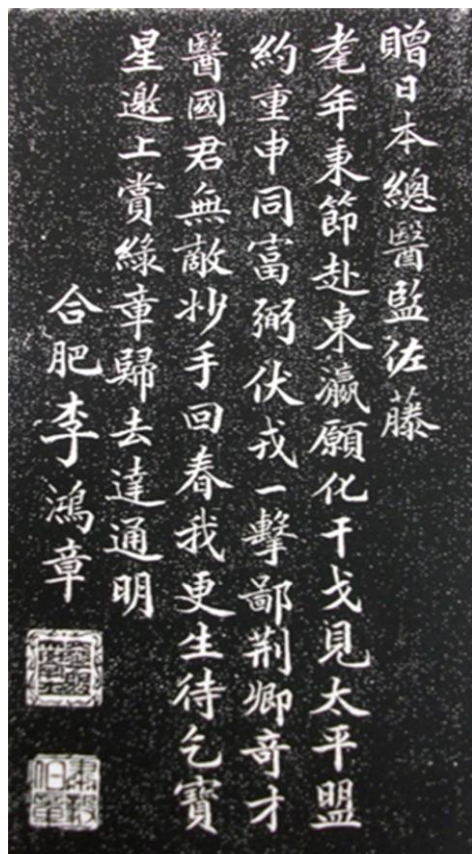 贈日本總醫監佐藤
耄年秉節赴東瀛願化干戈見太平盟
約重申同富弼伏戎一擊鄙荆卿奇才
醫國君無敵抄手回春我更生待乞寶
星邀上賞綠章歸去達通明
合肥李鴻章